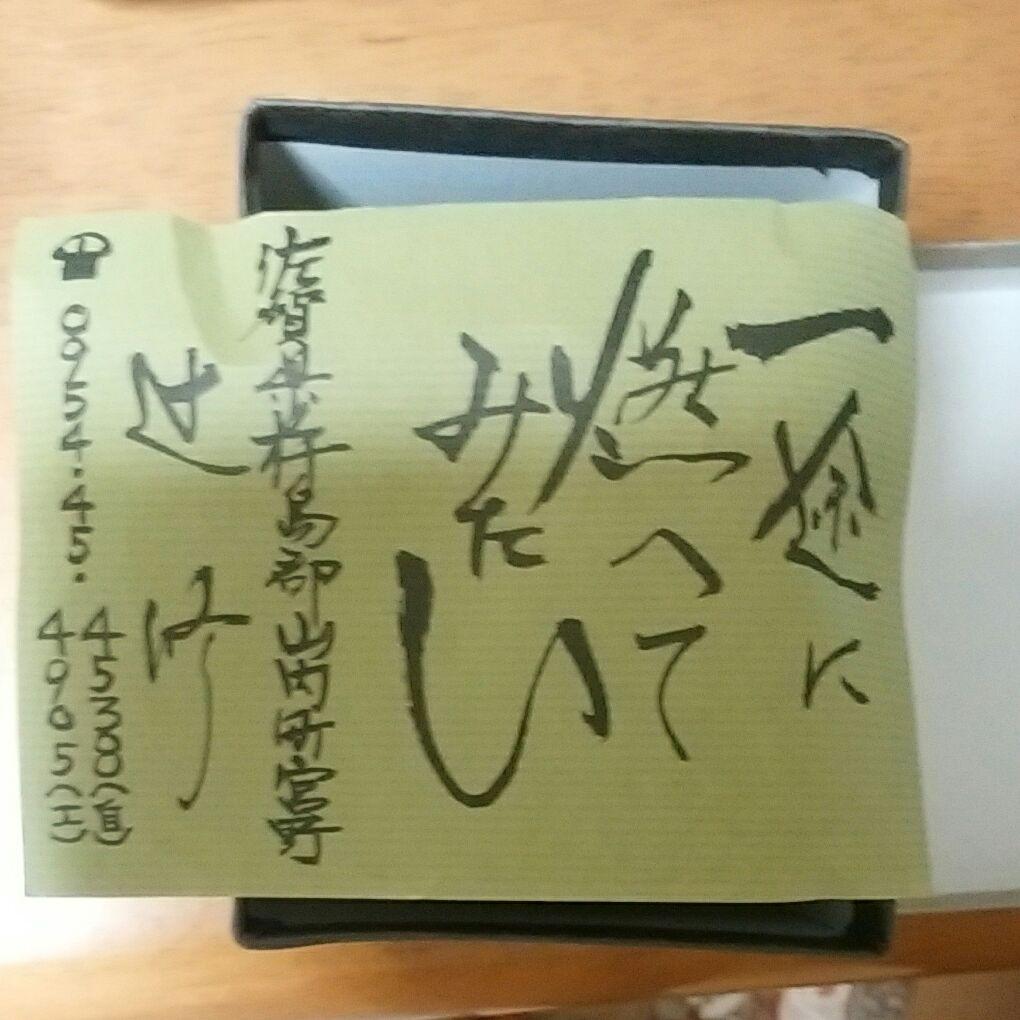 一途に
燃へて
みたい
佐賀県杵島郡山内町宮野
辻 修
☎ 0954.45.
4538(自)
4905(工)